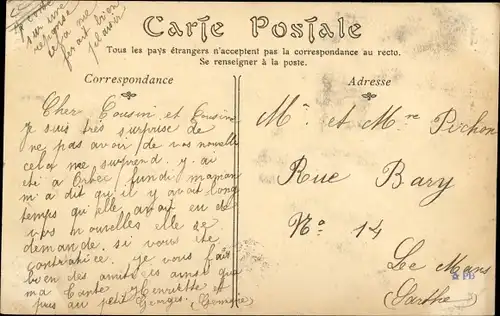 sur une
réponse
ça me
frait bien
plaisir
Carte Postale
Tous les pays étrangers n'acceptent pas la correspondance au recto.
Se renseigner à la poste.
Correspondance
Cher Cousin et Cousine
je suis très surprise de
ne pas avoir de vos nouvelle
cela me surprend. y. ai
été a Orbec lundi maman
m. a dit qu'il y avait long
temps qu'elle avait eu de
vos nouvelles elle se
demande. si vous ete
contrariée. je vous fait
bien des amitiées ainsi que
ma Tante Henriette et
puis au petit Georges.
Adresse
Mr et Mme Pichon
Rue Bary
No 14
Le Mans
(Sarthe)
PB